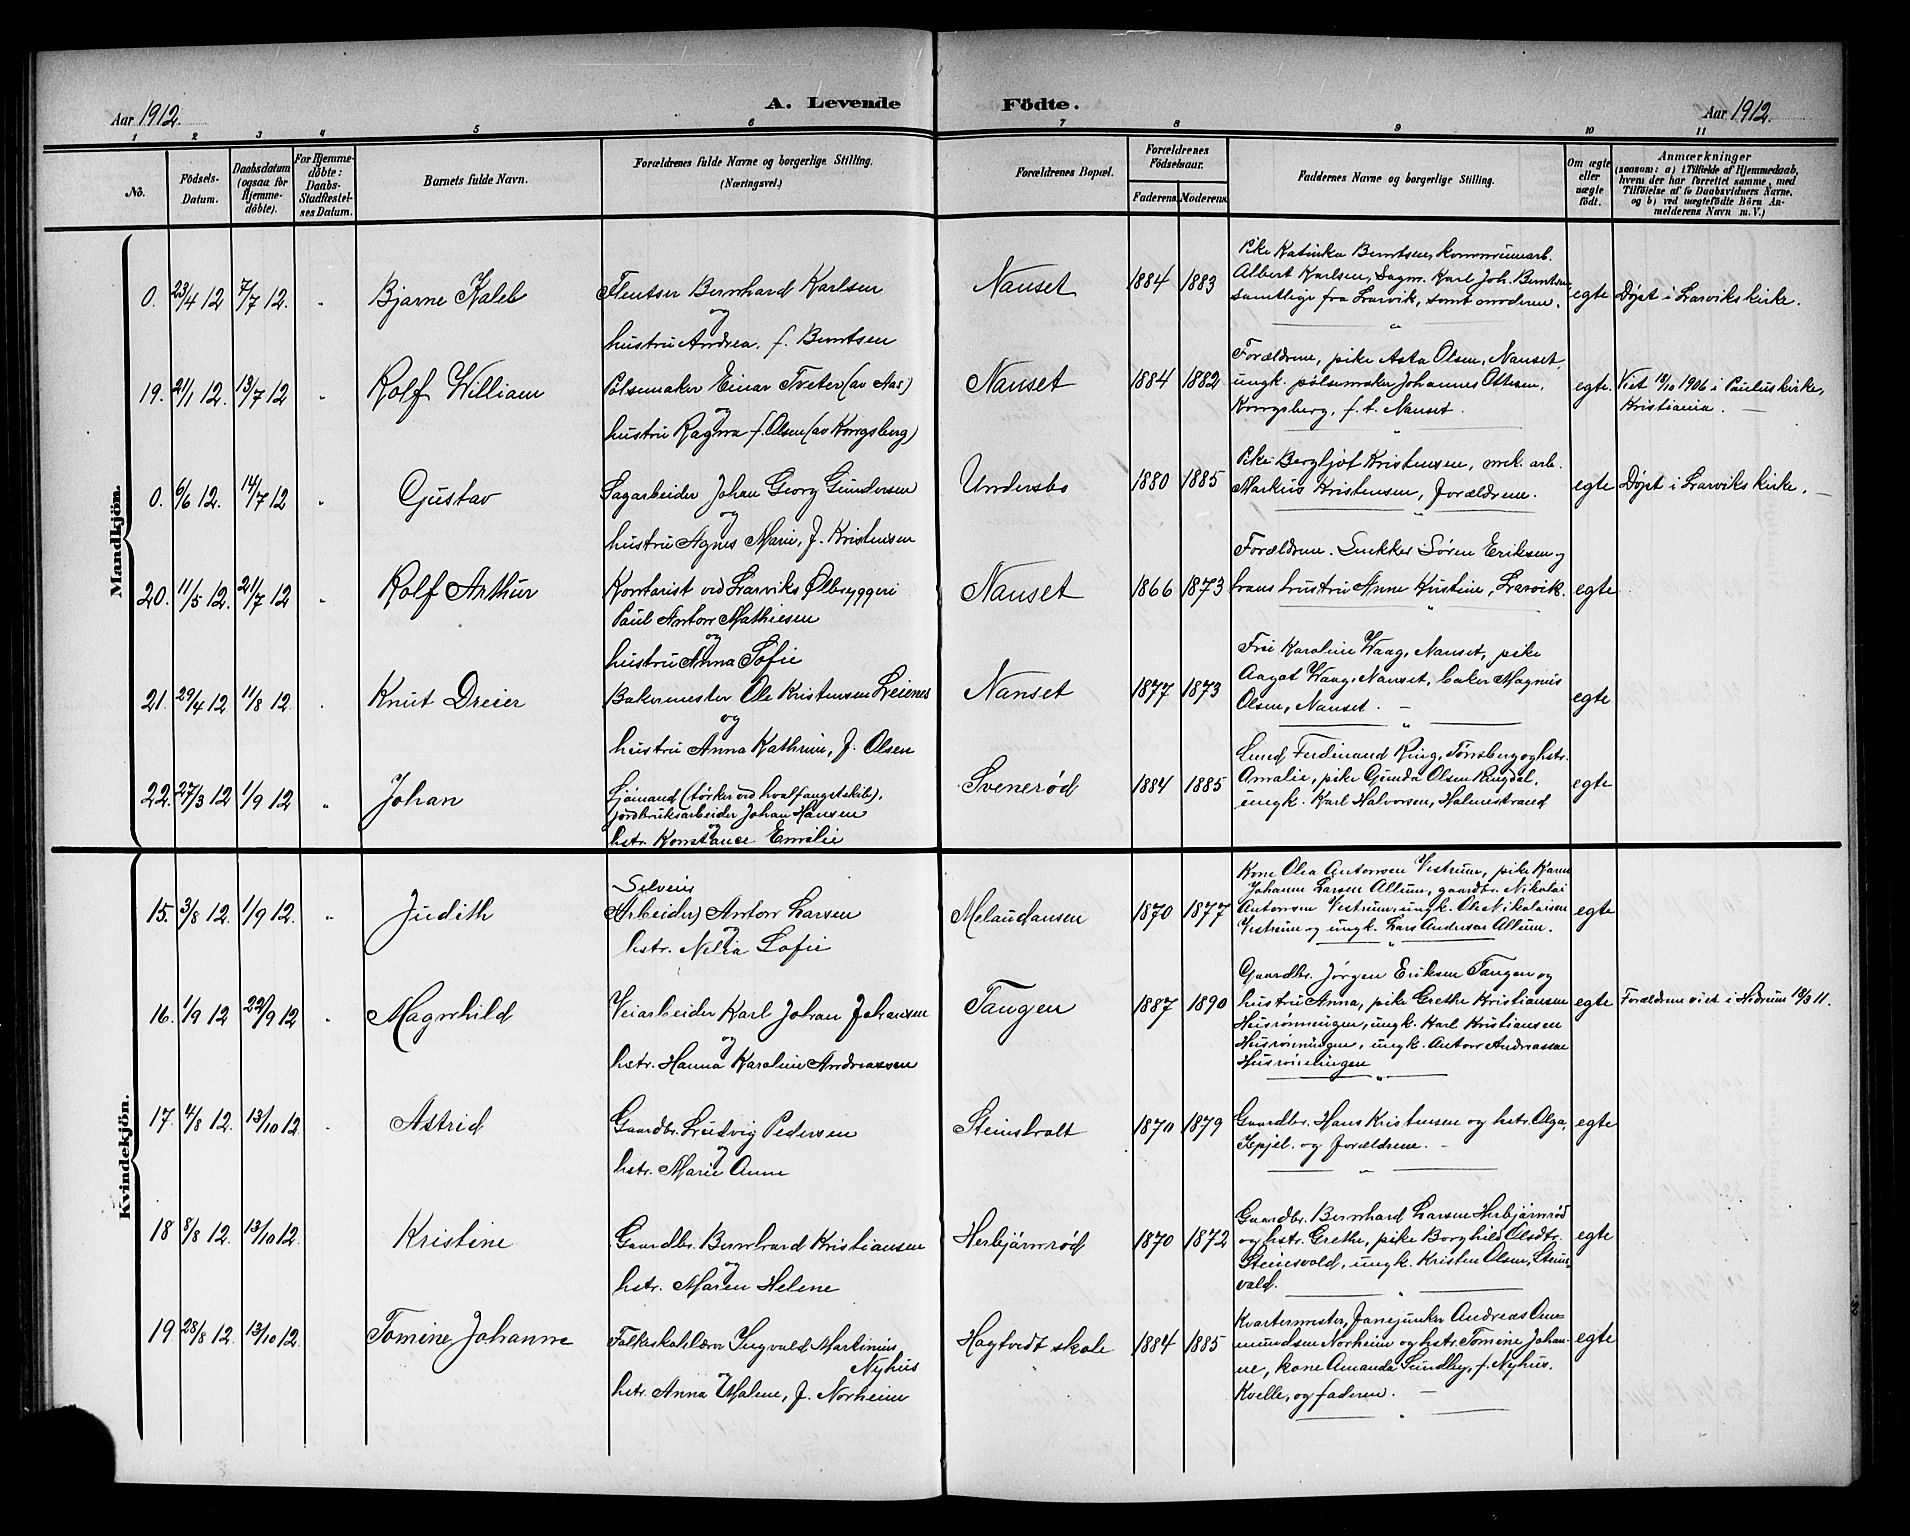 Aar 1912.
A. Levende
Födte.
Aar 1912.
1 2 3 4 5 6 7 8 9 10 11
No.
Födsels-
Datum.
Daabsdatum
(ogsaa for
Hjemme-
döbte).
For Hjemme-
döbte:
Daabs-
Stadfæstel-
ses Datum.
Barnets fulde Navn.
Forældrenes fulde Navne og borgerlige Stilling.
(Næringsvei.)
Forældrenes Bopæl.
Forældrenes
Födselsaar.
Faderens. Moderens.
Faddernes Navne og borgerlige Stilling.
Om ægte
eller
uægte
födt.
Anmærkninger
(saasom: a) i Tilfælde af Hjemmedaab,
hvem der har forrettet samme, med
Tilföielse af to Daabsvidners Navne,
og b) ved uægtefödte Börn An-
melderens Navn m. V.)
Mandkjön.
0. 23/4 12 7/7 12. " Bjarne Kaleb
Bernhard Karlsen
og
hustru Andrea, f. Berntsen
Nanset 1884 1883
Pike Katinka Berntsen, kommunearb.
Albert Karlsen, Sagm. Karl Joh. Berntsen
samtlige fra Larvik, samt moderen.
egte Døpt i Larviks kirke.
19. 21/1 12. 13/7 12 Rolf William
Pølsemaker Einar Treter (av Aas)
og
hustru Ragna f. Olsen (av Kongsberg)
Nanset 1884 1882
Forældrene, pike Asta Olsen, Nanset,
ungk. pølsemaker Johannes Ottesen,
Kongsberg, f. t. Nanset.
egte. Viet 13/10 1906 i Paulus kirke,
Kristiania. —
0. 6/6 12. 14/7 12 " Gustav
Sagarbeider Johan Georg Gundersen
og
hustru Agnes Marie, f. Kristensen
Undersbo 1880 1885
Pike Bergljot Kristensen, mek. arb.
Markus Kristensen, forældrene.
egte Døpt i Larviks kirke. —
20. 11/5 12. 21/7 12 " Rolf Arthur
Kontorist ved Larviks Ølbryggeri
Paul Anton Mathiesen
og
hustru Anna Sofie
Nanset 1866 1873
Forældrene. Snekker Søren Eriksen og
hans hustru Anne Kristine, Larvik.
egte
21. 29/4 12 11/8 12. " Knut Dreier
Bakermester Ole Kristensen Leienes
og
hustru Anna Kathrine, f. Olsen
Nanset 1877 1873
Fru Karoline Waag, Nanset, pike
Aagot Waag, Nanset, baker Magnus
Olsen, Nanset. —
egte
22. 27/3 12 1/9 12 " Johan
Sjömand (tørker ved hvalfangstskib),
jordbruksarbeider Johan Hansen
og
hstr. Konstance Emilie
Svenerød 1884 1885
Ferdinand Ring, Tønsberg og hstr.
Amalie, pike Gunda Olsen Ringdal,
ungk. Karl Halvorsen, Holmestrand
egte
Kvindekjön.
15. 3/8 12. 1/9 12. " Judith
Arbeider) Anton Larsen
og
hstr. Nilia Sofie
1870 1877
Kone Olea Antonsen Vestrum, pike Karen
Johanne Larsen Allum, gaardbr. Nikolai
Antonsen Vestrum, ungk. Ole Nikolaisen
Vestrum og ungk. Lars Andersen Allum.
egte
16. 1/9 12 22/9 12 " Magnhild
Veiarbeider Karl Johan Johansen
og
hstr. Hanna Karoline Andreassen
Tangen 1887 1890
Gaardbr. Jørgen Eriksen Tangen og
hustru Anna, pike Grethe Kristiansen
Husrønningen, ungk. Karl Kristiansen
Husrønningen, ungk. Anton Andreassen
Husrønningen
egte Forældrene viet i Hedrum 18/3 11.
17. 4/8 12. 13/10 12. " Astrid
Gaardbr. Ludvig Pedersen
og
hstr. Marie Anne
Steinsholt 1870 1879
Gaardbr. Hans Kristensen og hstr. Olga,
og forældrene. —
egte
18 8/8 12. 13/10 12. Kristine
Gaardbr. Bernhard Kristiansen
og
hstr. Maren Helene
Herbjörnrød 1870 1872
Gaardbr. Bernhard Larsen Herbjörnrød
og hstr. Grethe, pike Borghild Olsdtr.
Steinsvald, ungk. Kristen Olsen, Steins-
vald.
egte
19. 28/8 12. 13/10 12. Tomine Johanne
Folkeskolelærer Ingvald Martinius
Nyhus
og
hstr. Anna Malene, f. Norheim
Hagtvedt skole 1884 1885
Kvartermester, fanejunker Andreas Am-
mundsen Norheim og hstr. Tomine Johan-
ne, kone Amanda Sundby, f. Nyhus,
Kvelle, og faderen. —
egte